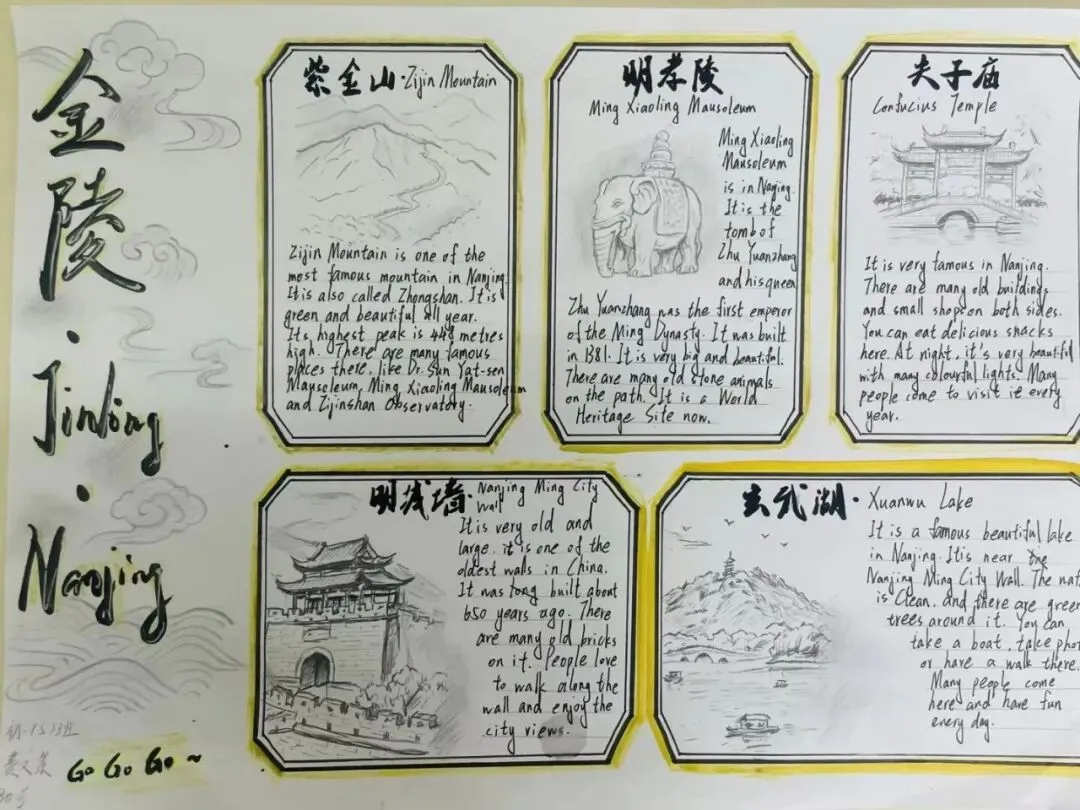 金陵
·
Jinling
·
Nanjing
紫金山·Zijin Mountain
Zijin Mountain is one of the
most famous mountain in Nanjing.
It is also called Zhongshan. It is
green and beautiful all year.
Its highest peak is 448 metres
high. There are many famous
places there, like Dr. Sun Yat-sen
Mausoleum, Ming Xiaoling Mausoleum
and Zijinshan Observatory.
明孝陵
Ming Xiaoling Mausoleum
Ming Xiaoling
Mausoleum
is in Nanjing.
It is the
tomb of
Zhu Yuanzhang
and his queen
Zhu Yuanzhang was the first emperor
of the Ming Dynasty. It was built
in 1381. It is very big and beautiful.
There are many old stone animals
on the path. It is a World
Heritage Site now.
夫子庙
Confucius Temple
It is very famous in Nanjing.
There are many old buildings
and small shops on both sides.
You can eat delicious snacks
here. At night, it's very beautiful
with many colourful lights. Many
people come to visit it every
year.
明城墙·Nanjing Ming City
Wall
It is very old and
large. it is one of the
oldest walls in China.
It was built about
650 years ago. There
are many old bricks
on it. People love
to walk along the
wall and enjoy the
city views.
玄武湖·Xuanwu Lake
It is a famous beautiful lake
in Nanjing. It is near the
Nanjing Ming City Wall. The wat
is Clean, and there are green
trees around it. You can
take a boat, take phot
or have a walk there.
Many people come
here and have fun
every day.
Go Go Go ~